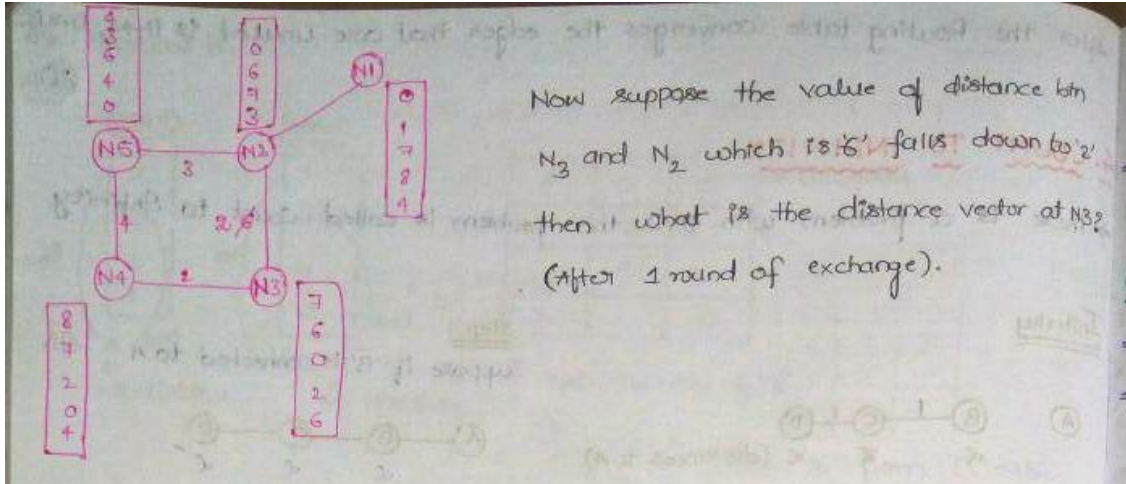 4
3
6
4
0
1
0
6
7
3
N1
0
1
7
8
4
N5
3
N2
4
2, 6
N4
2
N3
8
7
2
0
4
7
6
0
2
6
Now suppose the value of distance btn
N3 and N2 which is '6' falls down to '2'
then what is the distance vector at N3?
(After 1 round of exchange).